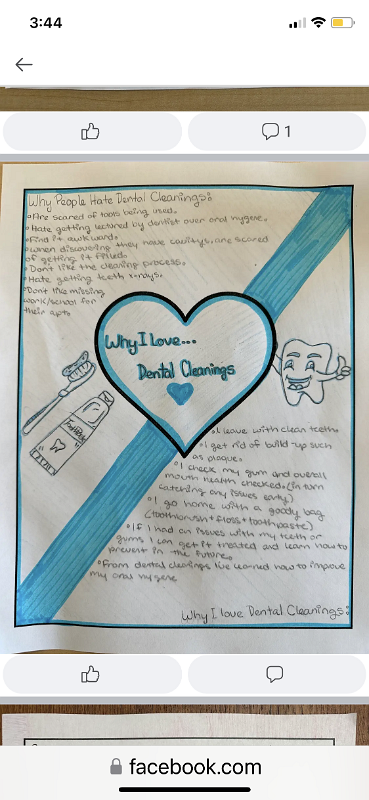 3:44
1
Why People Hate Dental Cleanings:
•Are scared of tools being used.
•Hate getting lectured by dentist over oral hygene.
•Find it awkward.
•When discovering they have cavitys, are scared
of getting it filled.
•Don't like the cleaning process.
•Hate getting teeth x-rays.
•Don't like missing
work/school for
their apt.
Why I Love...
Dental Cleanings
Toothpaste
•I leave with clean teeth.
•I get rid of build-up such
as plaque.
•I check my gum and overall
mouth health checked. (in turn
catching any issues early)
•I go home with a goody bag
(toothbrush + floss + toothpaste)
•If I had an issues with my teeth or
gums I can get it treated and learn how to
prevent in the future.
•From dental cleanings I've learned how to improve
my oral hygene
Why I love Dental Cleanings:
facebook.com